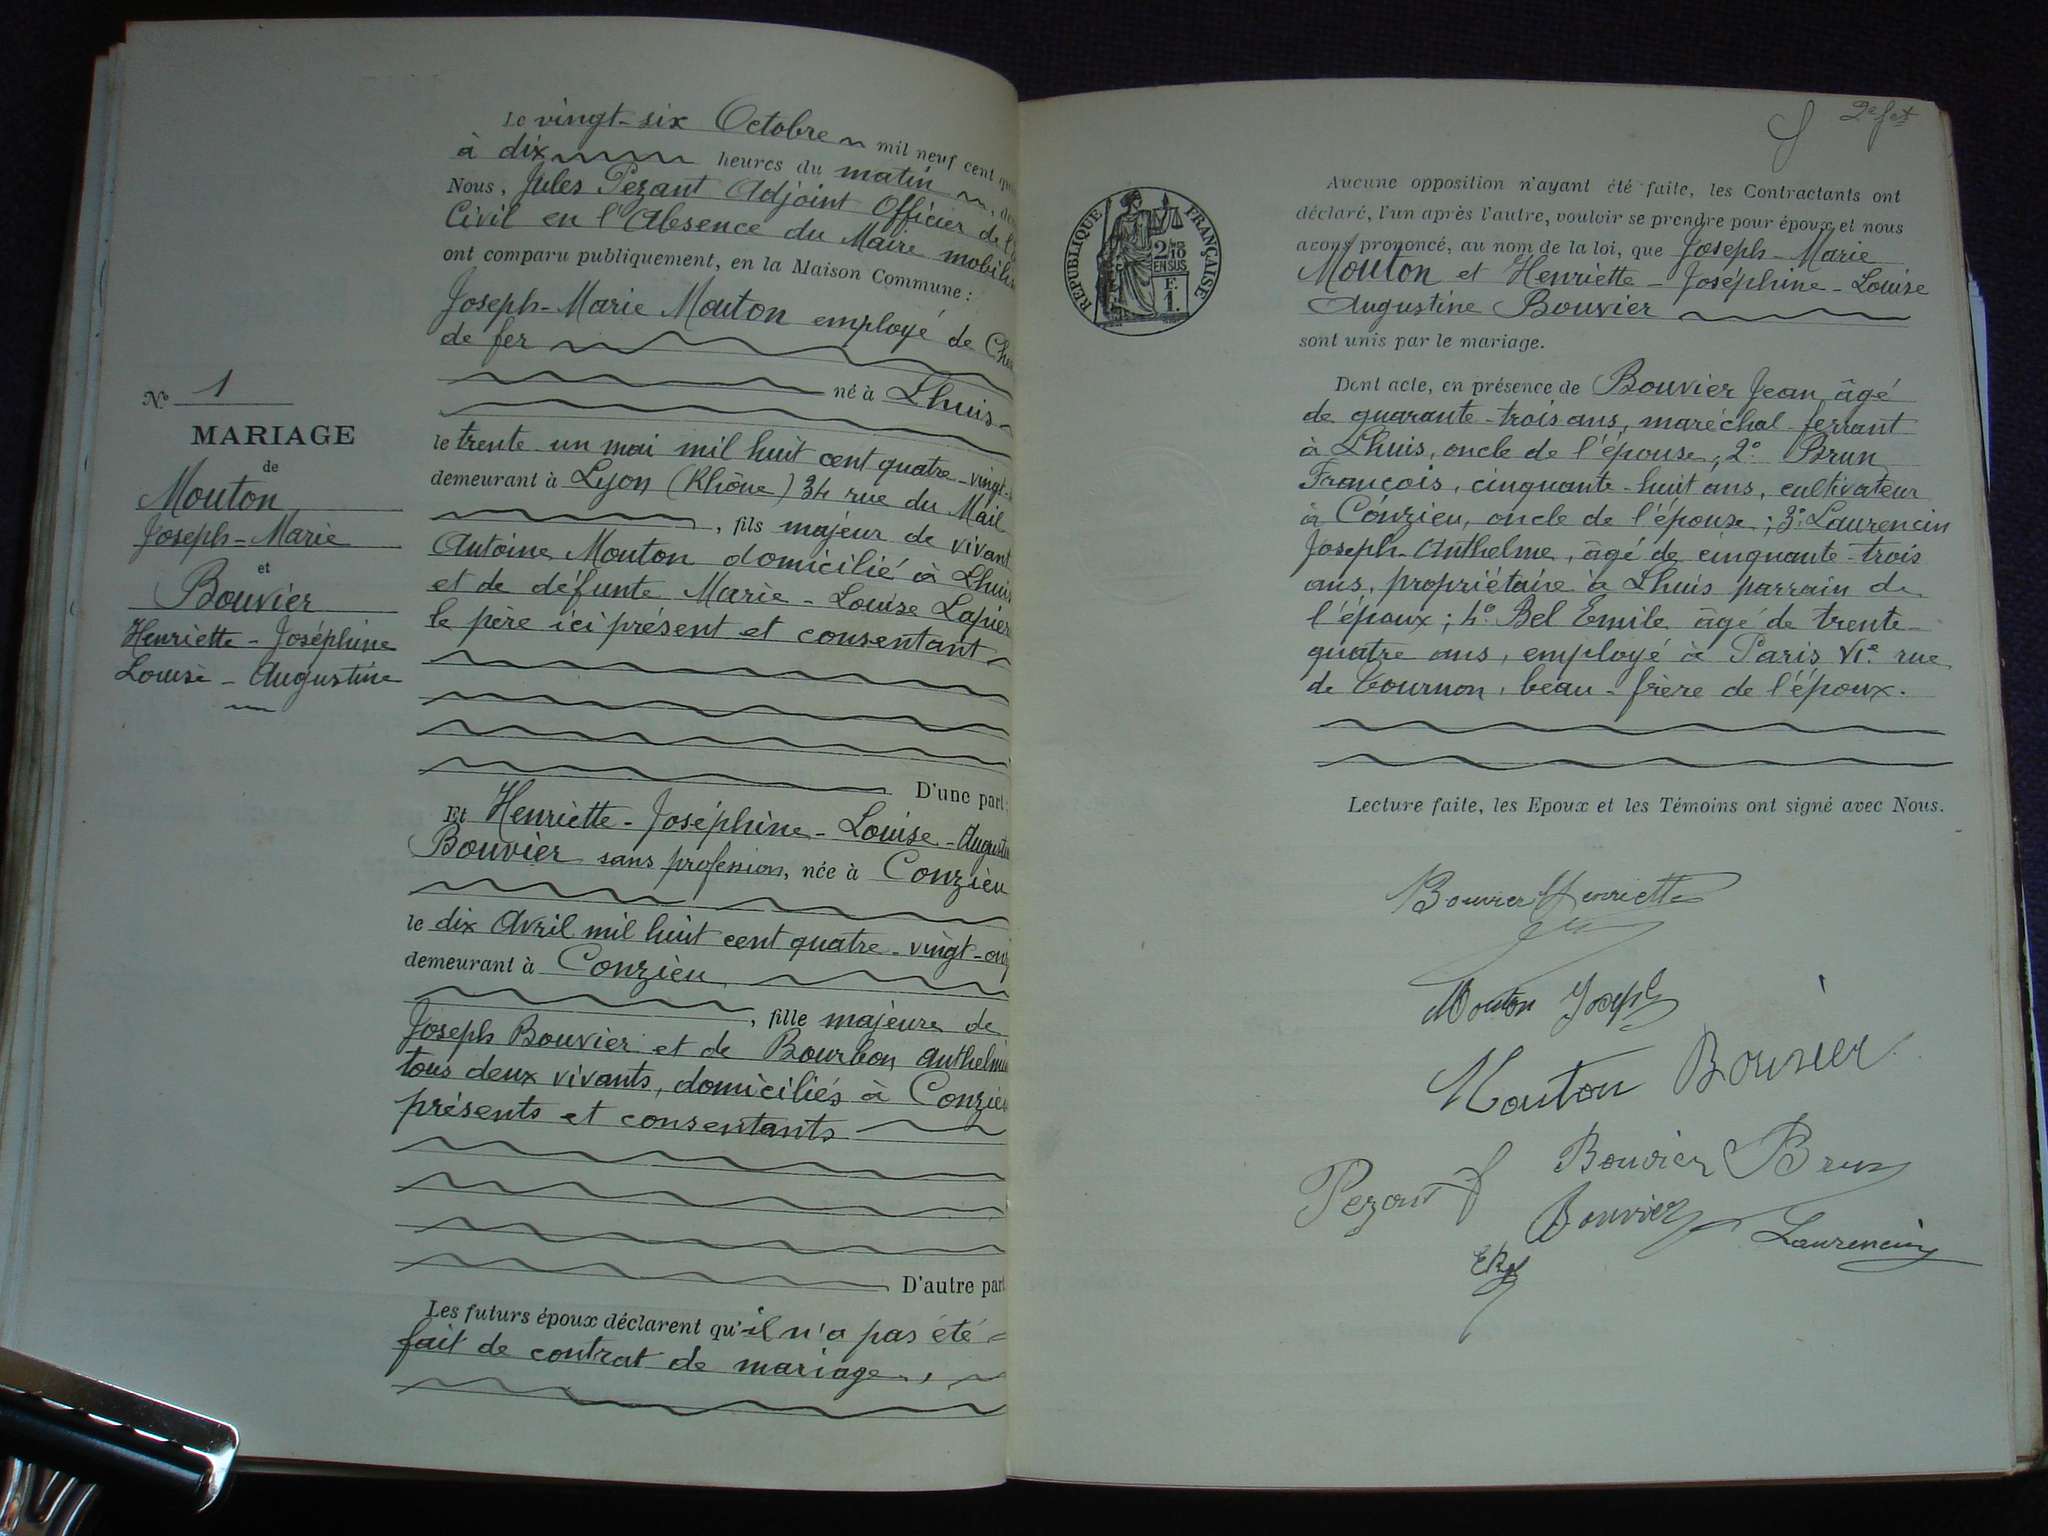 Le vingt-six Octobre mil neuf cent
à dix heures du matin
Nous, Jules Pezant Adjoint Officier de
Civil en l'Absence du Maire
ont comparu publiquement, en la Maison Commune :
Joseph-Marie Mouton employé de
de fer
né à Lhuis
le trente-un mai mil huit cent quatre-vingt-
demeurant à Lyon (Rhône) 34 rue du Mail
, fils majeur de vivant
Antoine Mouton domicilié à Lhuis
et de défunte Marie-Louise
le père ici présent et consentant
D'une part :
Et Henriette-Joséphine-Louise-
Bouvier sans profession, née à Conzieu
le dix Avril mil huit cent quatre-vingt-
demeurant à Conzieu
, fille majeure de
Joseph Bouvier et de Bourbon
tous deux vivants, domiciliés à Conzieu
présents et consentants
D'autre part
Les futurs époux déclarent qu'il n'a pas été
fait de contrat de mariage,
N° 1
MARIAGE
de
Mouton
Joseph-Marie
et
Bouvier
Henriette-Joséphine
Louise-Augustine
RÉPUBLIQUE FRANÇAISE
2/10
EN SUS
F.
1.
Aucune opposition n'ayant été faite, les Contractants ont
déclaré, l'un après l'autre, vouloir se prendre pour époux et nous
avons prononcé, au nom de la loi, que Joseph-Marie
Mouton et Henriette-Joséphine-Louise
Augustine Bouvier
sont unis par le mariage.
Dont acte, en présence de Bouvier Jean âgé
de quarante-trois ans, maréchal-ferrant
à Lhuis, oncle de l'épouse; 2° Brun
François, cinquante-huit ans, cultivateur
à Conzieu, oncle de l'épouse; 3° Laurencin
Joseph-Anthelme, âgé de cinquante-trois
ans, propriétaire à Lhuis parrain de
l'époux; 4° Bel Emile âgé de trente-
quatre ans, employé à Paris VIe rue
de Tournon, beau-frère de l'époux.
Lecture faite, les Epoux et les Témoins ont signé avec Nous.
Bouvier Henriette
Mouton Joseph
Mouton Bouvier
Bouvier Brun
Pezant
Bouvier
Laurencin